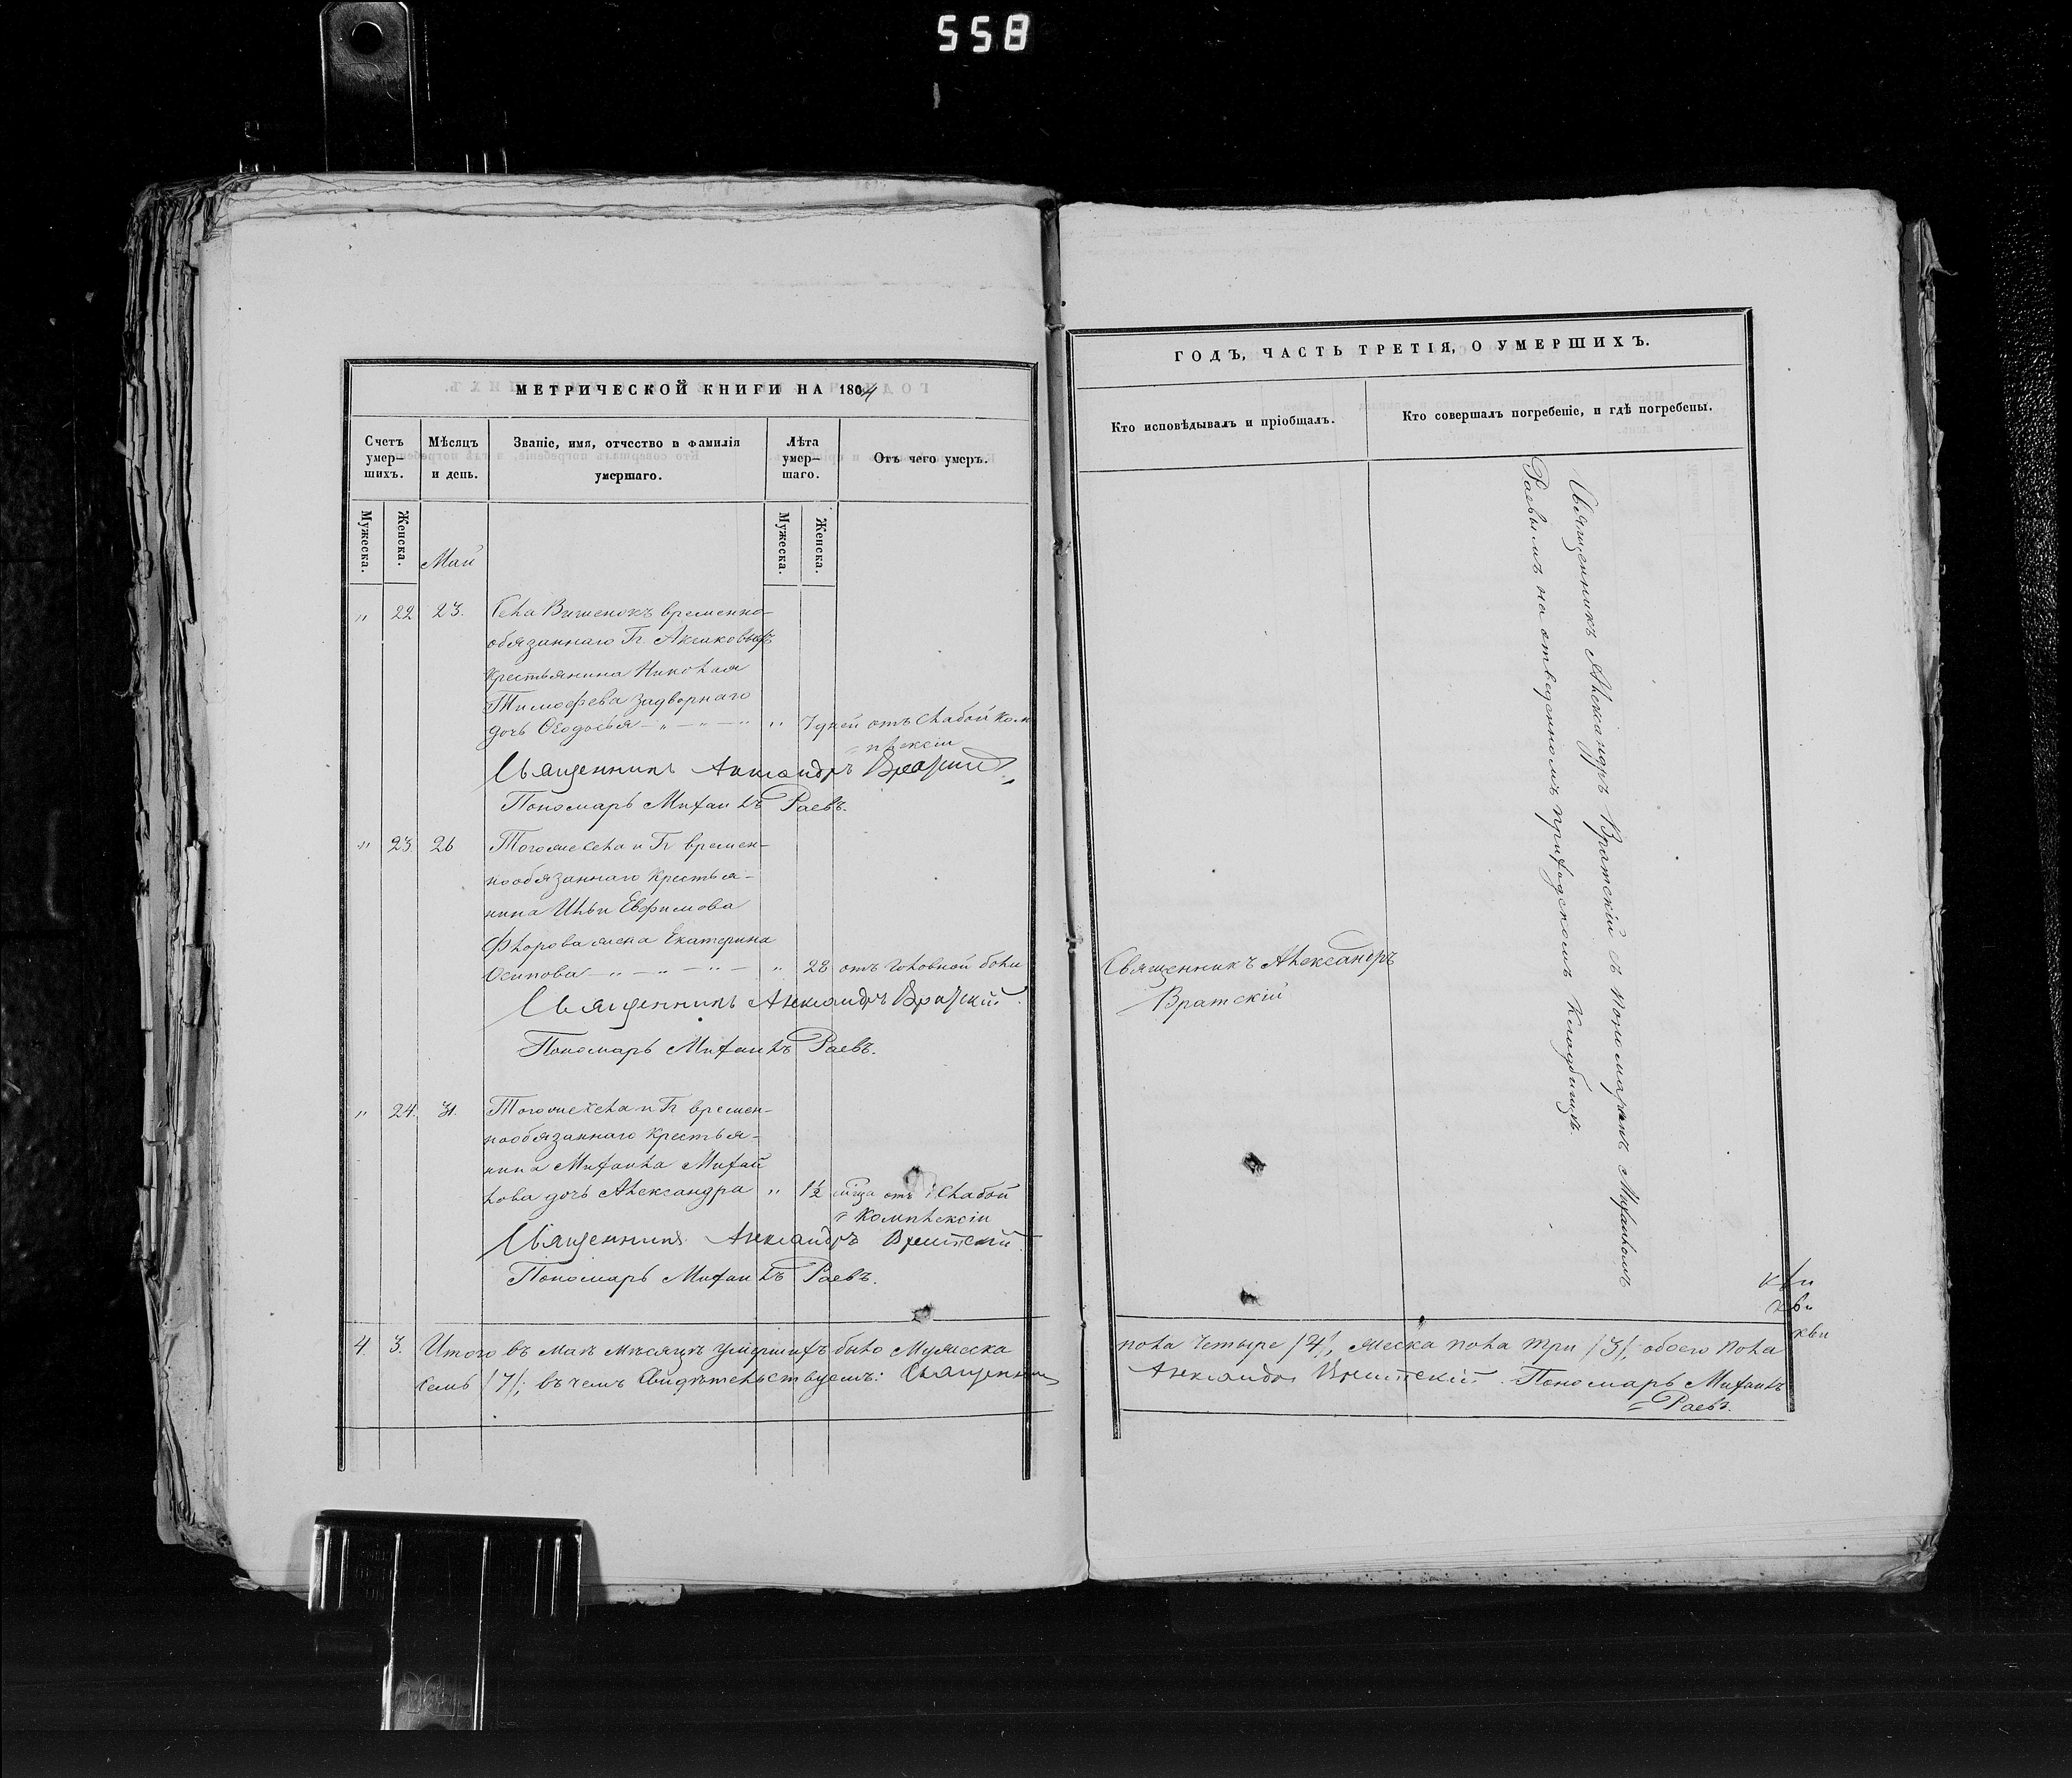 558
МЕТРИЧЕСКОЙ КНИГИ НА 1864
Счетъ умер—шихъ.
Мѣсяцъ и день.
Званіе, имя, отчество и фамилія умершаго.
Лѣта умер—шаго.
Отъ чего умеръ.
Мужеска.
Женска.
Май
Мужеска.
Женска.
„ 22 23. Села Вишенокъ временно-
обязаннаго Гг
крестьянина Николая
Тимофеева Задворнаго
дочь Ѳеодосья — „ — „ — „ „ 7 дней отъ слабой ком
= плексіи
Священникъ Александръ Братскій
Пономарь Михаилъ Раевъ.
„ 23 26 Тогоже села и Гг времен-
нообязаннаго крестья-
нина Ильи Евфимова
Флорова жена Екатерина
Осипова — „ — „ — „ — „ 28 отъ головной боли
Священникъ Александръ Братскій
Пономарь Михаилъ Раевъ.
„ 24. 31. Тогоже села и Гг времен-
нообязаннаго крестья-
нина Михаила Михай
лова дочь Александра „ 1½ мѣца отъ слабой
= комплексіи
Священникъ Александръ Братскій
Пономарь Михаилъ Раевъ.
4. 3. Итого въ маѣ мѣсяцѣ умершихъ было мужеска
семь /7/; въ чемъ свидѣтельствуемъ: Священникъ
ГОДЪ, ЧАСТЬ ТРЕТІЯ, О УМЕРШИХЪ.
Кто исповѣдывалъ и пріобщалъ.
Кто совершалъ погребеніе, и гдѣ погребены.
Священникъ Александръ Братскій съ пономаремъ Михаиломъ
Раевымъ на отведенномъ приходскомъ кладбищѣ.
Священникъ Александръ
Братскій
пола четыре /4/, женска пола три /3/, обоего пола
Александръ Братскій. Пономарь Михаилъ
= Раевъ.